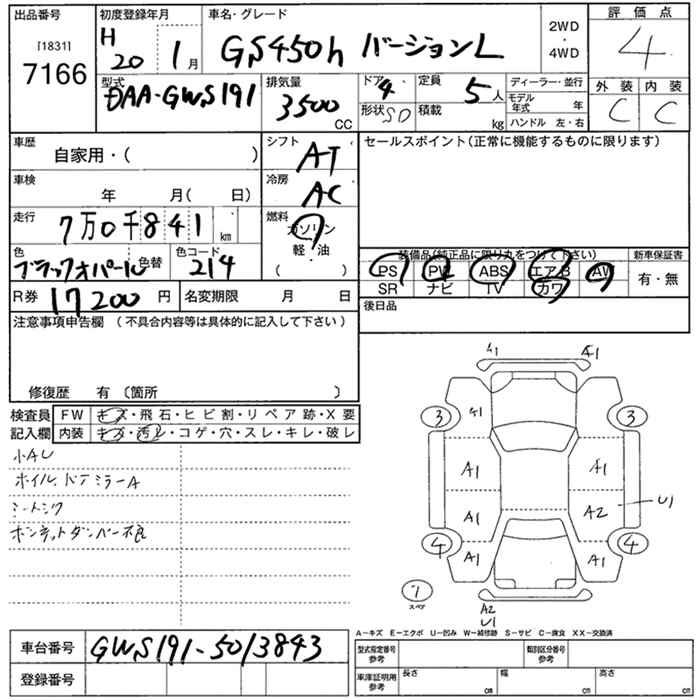 出品番号
[1831]
7166
初度登録年月
H
20 1月
車名・グレード
GS450h バージョンL
2WD
・
4WD
評価点
4
型式
DAA-GWS191
排気量
3500
CC
ドア 4
形状 SD
定員 5人
積載 kg
ディーラー・並行
モデル年式 年
ハンドル 左・右
外装 内装
C C
車歴
自家用・( )
シフト
AT
セールスポイント(正常に機能するものに限ります)
車検
年 月( 日)
冷房
AC
走行
7万0千841 km
燃料
ガソリン
軽・油
( )
色
ブラックオパール
色替
色コード
214
装備品(純正品に限り丸をつけて下さい)
新車保証書
PS PW ABS エアB AW
SR ナビ TV カワ
有・無
R券 17200円
名変期限 月 日
後日品
注意事項申告欄 (不具合内容等は具体的に記入して下さい)
修復歴 有 (箇所 )
検査員
記入欄
FW キズ・飛石・ヒビ割・リペア跡・X要
内装 キズ・汚レ・コゲ・穴・スレ・キレ・破レ
小AU
ホイル、ドアミラーA
シートシワ
ボンネットダンパー不良
A1 A1
3 A1 3
A1 A1
A1 A2 U1
4 A1 A1 4
7
スペア
A2
U1
A−キズ E−エクボ U−凹み W−補修跡 S−サビ C−腐食 XX−交換済
車台番号 GWS191-5013843
登録番号
型式指定番号
参考
類別区分番号
参考
車庫証明用
参考
長さ cm
幅 cm
高さ cm